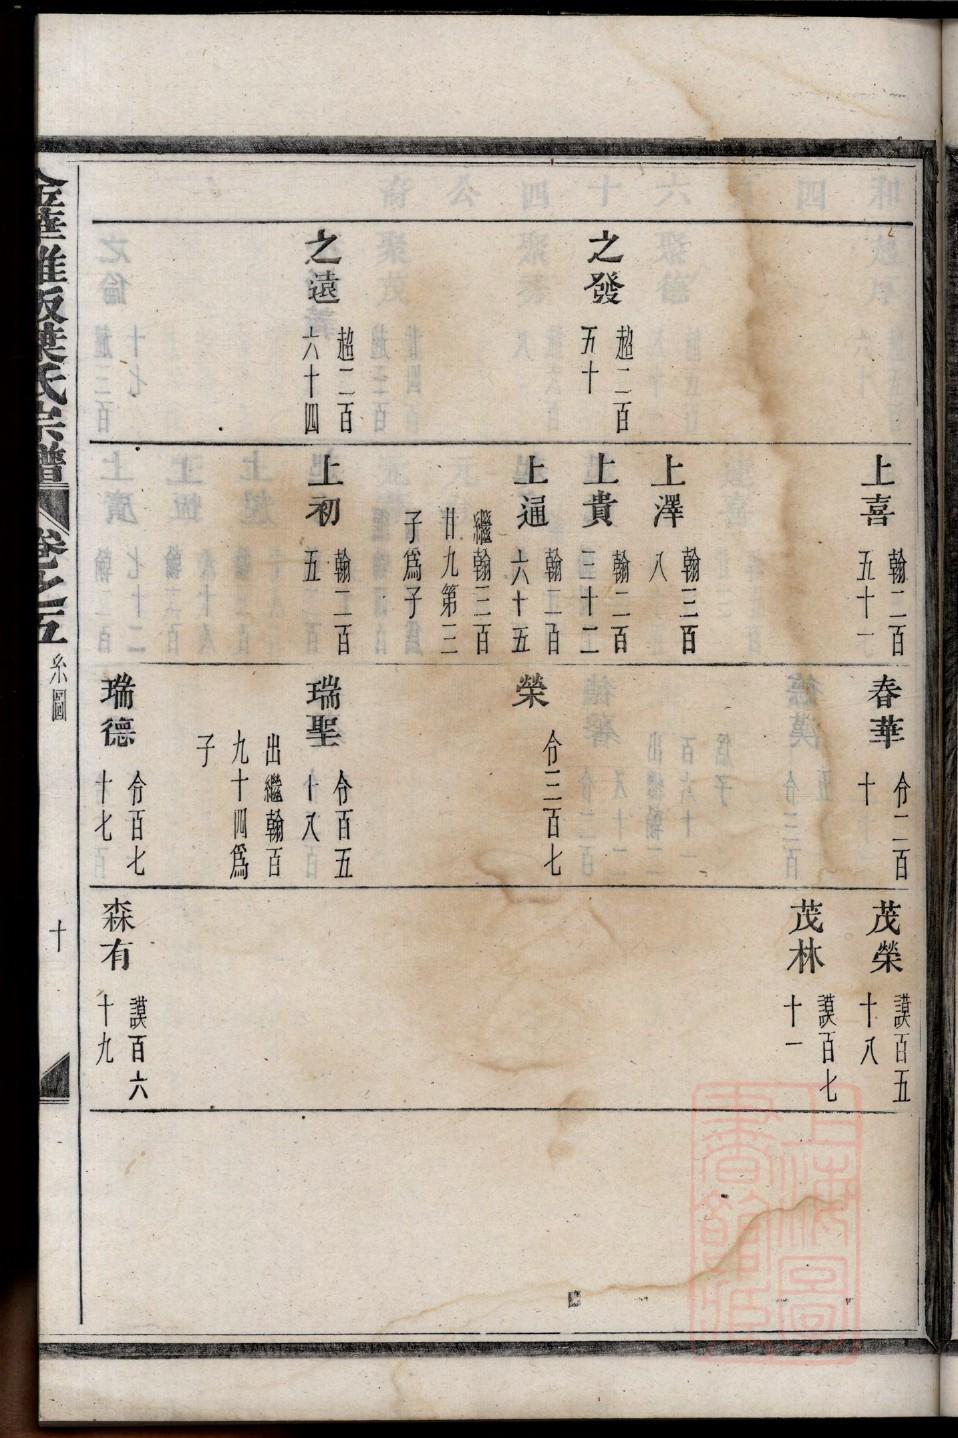 之發
超二百
五十
之遠
超二百
六十四
上喜
翰二百
五十一
上澤
翰三百
八
上貴
翰二百
三十二
上通
翰二百
六十五
繼翰三百
廿九第三
子爲子
上初
翰二百
五
春華
令二百
十
榮
令三百七
瑞聖
令百五
十八
出繼翰百
九十四爲
子
瑞德
令百七
十七
茂榮
謨百五
十八
茂林
謨百七
十一
森有
謨百六
十九
氏宗譜
卷之五
系圖
十
上海圖書館藏